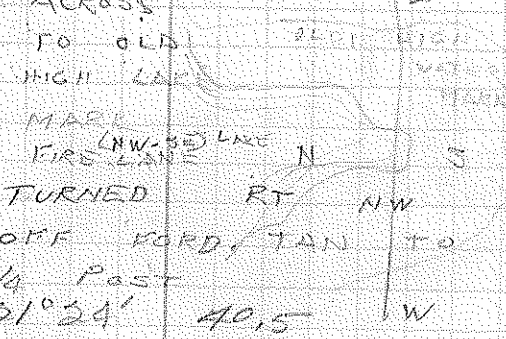 ACROSS
TO OLD
HIGH LAKE
MARK
(NW-SE) LINE
FIRE LANE N S
TURNED RT NW
OFF FORD, TAN TO
1/4 POST
21°24' 40.5 W